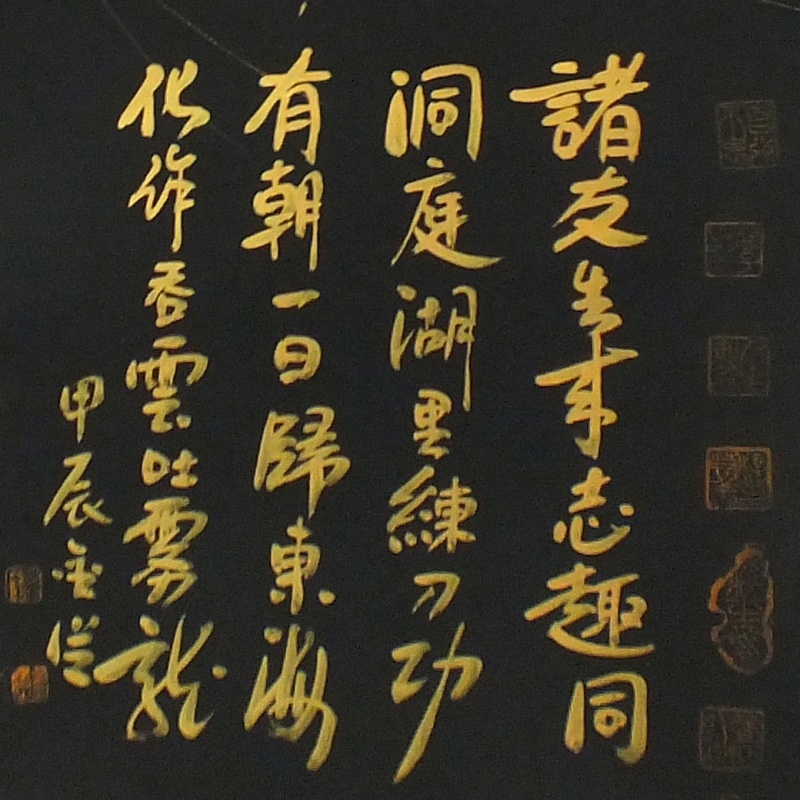 諸友生來志趣同
洞庭湖里練刀功
有朝一日歸東海
化作吞雲吐霧龍
甲辰